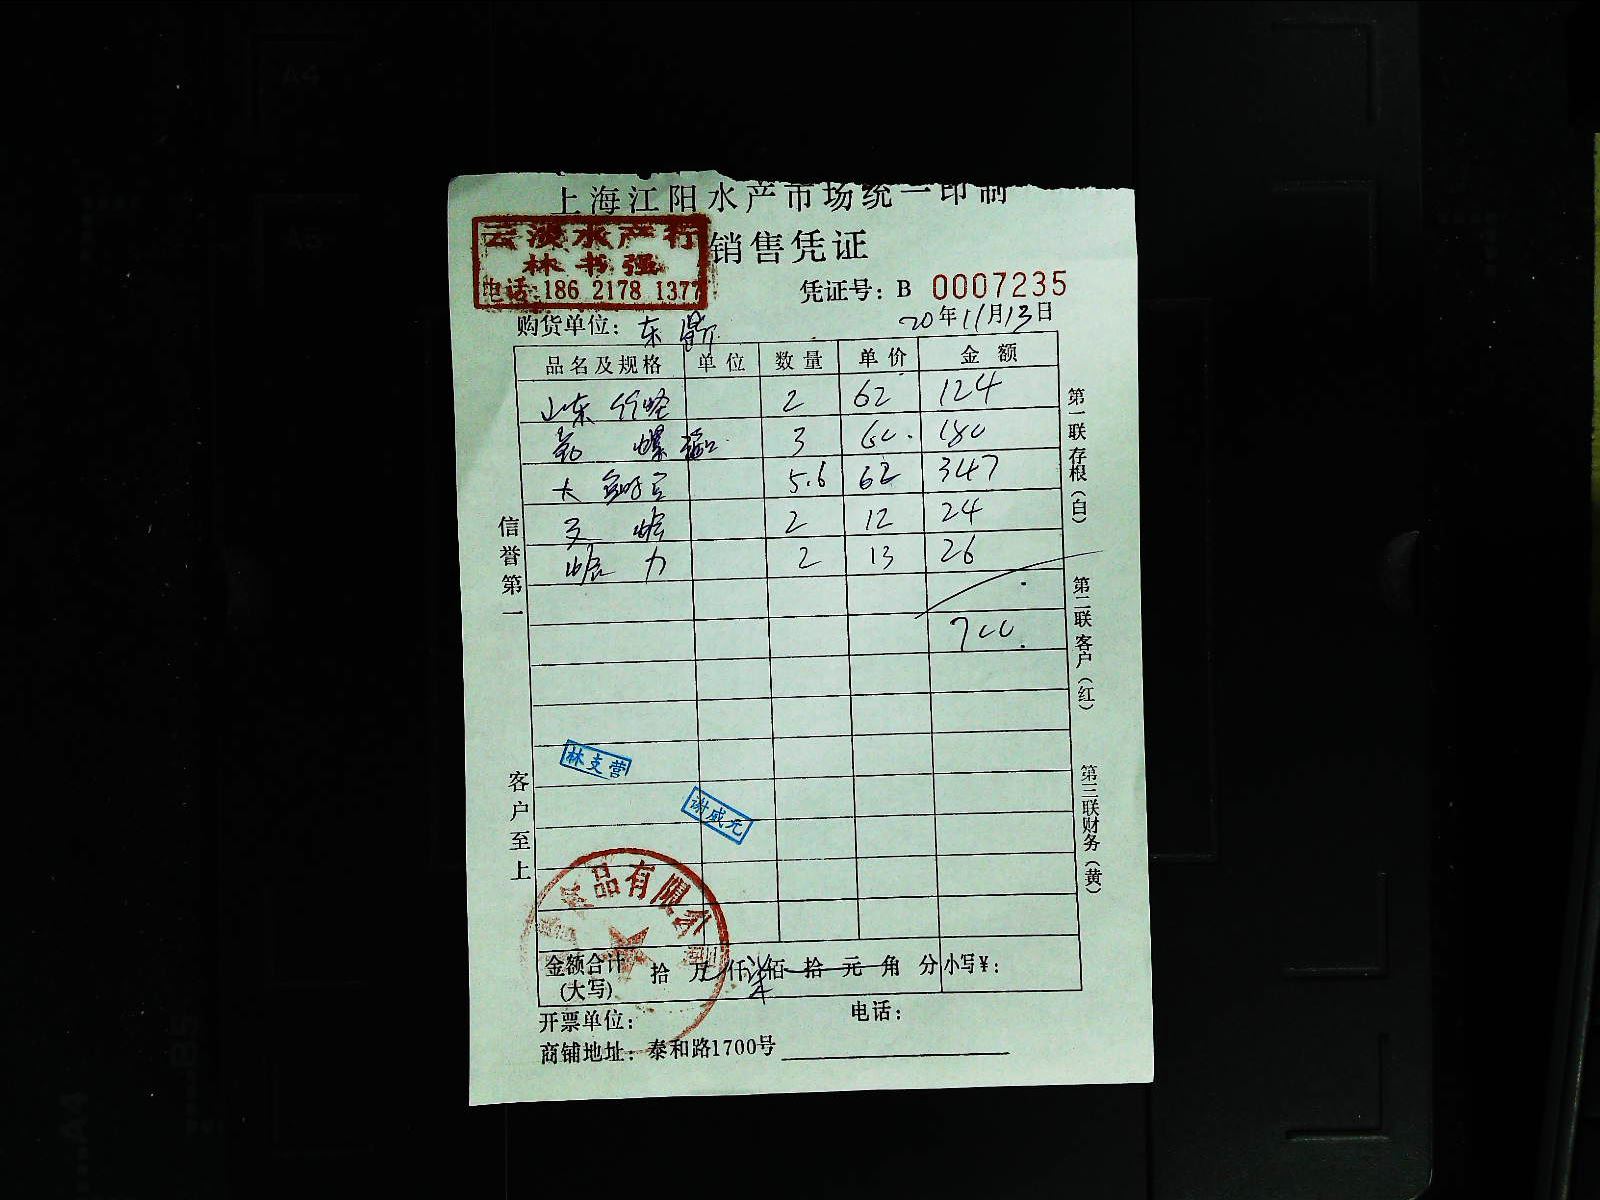 上海江阳水产市场统一印制
销售凭证
水产行
林书强
电话:186 2178 1377
凭证号: B 0007235
购货单位: 东
20年11月13日
品名及规格 单位 数量 单价 金额
山东 2 62 124
螺 3 60. 180
大 5.6 62 347
2 12 24
力 2 13 26
700
信誉第一
客户至上
第一联存根(白)
第二联客户(红)
第三联财务(黄)
林支营
谢威元
食品有限公司
金额合计(大写) 拾 万 仟 柒 佰 拾 元 角 分 小写¥:
开票单位: 电话:
商铺地址: 泰和路1700号